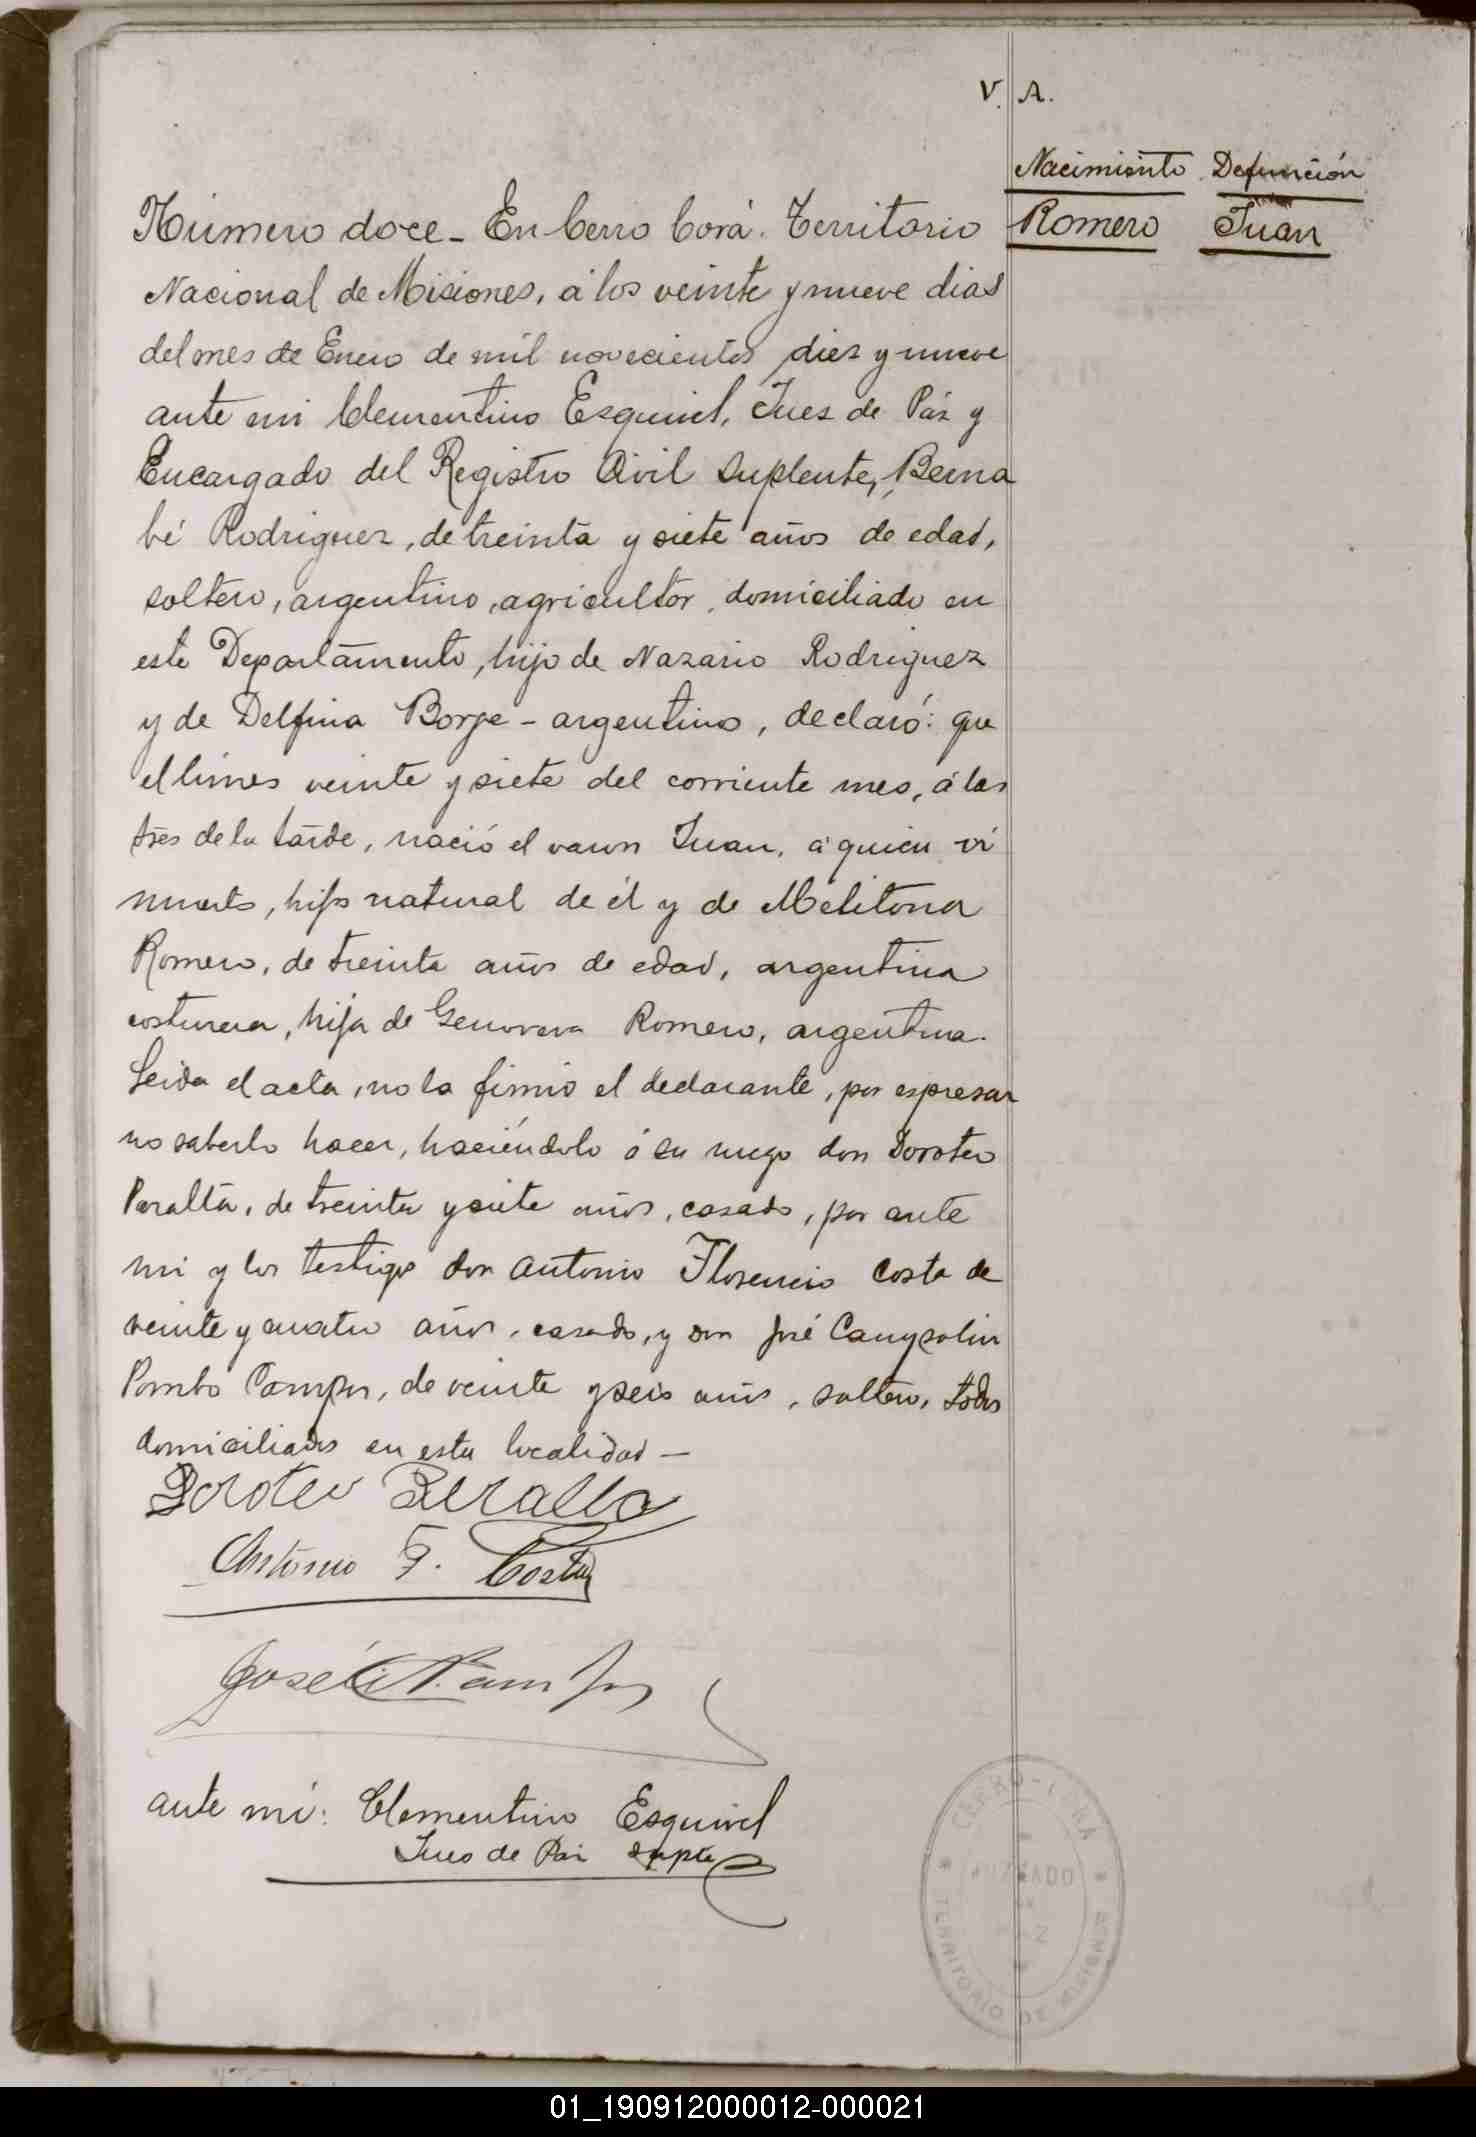 V. A.
Nacimiento Defunción
Romero Juan
Número doce - En Cerro Corá. Territorio
Nacional de Misiones, á los veinte y nueve dias
del mes de Enero de mil novecientos diez y nueve
ante mi Clementino Esquivel, Juez de Páz y
Encargado del Registro Civil Suplente, Berna
bé Rodriguez, de treinta y siete años de edad,
soltero, argentino, agricultor, domiciliado en
este Departamento, hijo de Nazario Rodriguez
y de Delfina Borje - argentino, declaró: que
el lúnes veinte y siete del corriente mes, á las
tres de la tarde, nació el varon Juan, a quien vi
muerto, hijo natural de él y de Melitona
Romero, de treinta años de edad, argentina
costurera, hija de Genoveva Romero, argentina.
Leida el acta, no la firmó el declarante, por espresar
no saberlo hacer, haciéndolo á su ruego don Doroteo
Peralta, de treinta y siete años, casado, por ante
mi y los testigos don Antonio Florencio Costa de
veinte y cuatro años, casado, y don José
Pombo Campos, de veinte y seis años, soltero, todos
domiciliados en esta localidad -
Doroteo Peralta
Antonio F. Costa
José
ante mi: Clementino Esquivel
Jues de Paz supte
CERRO-CORA
JUZGADO
DE
PAZ
TERRITORIO DE MISIONES
01_190912000012-000021